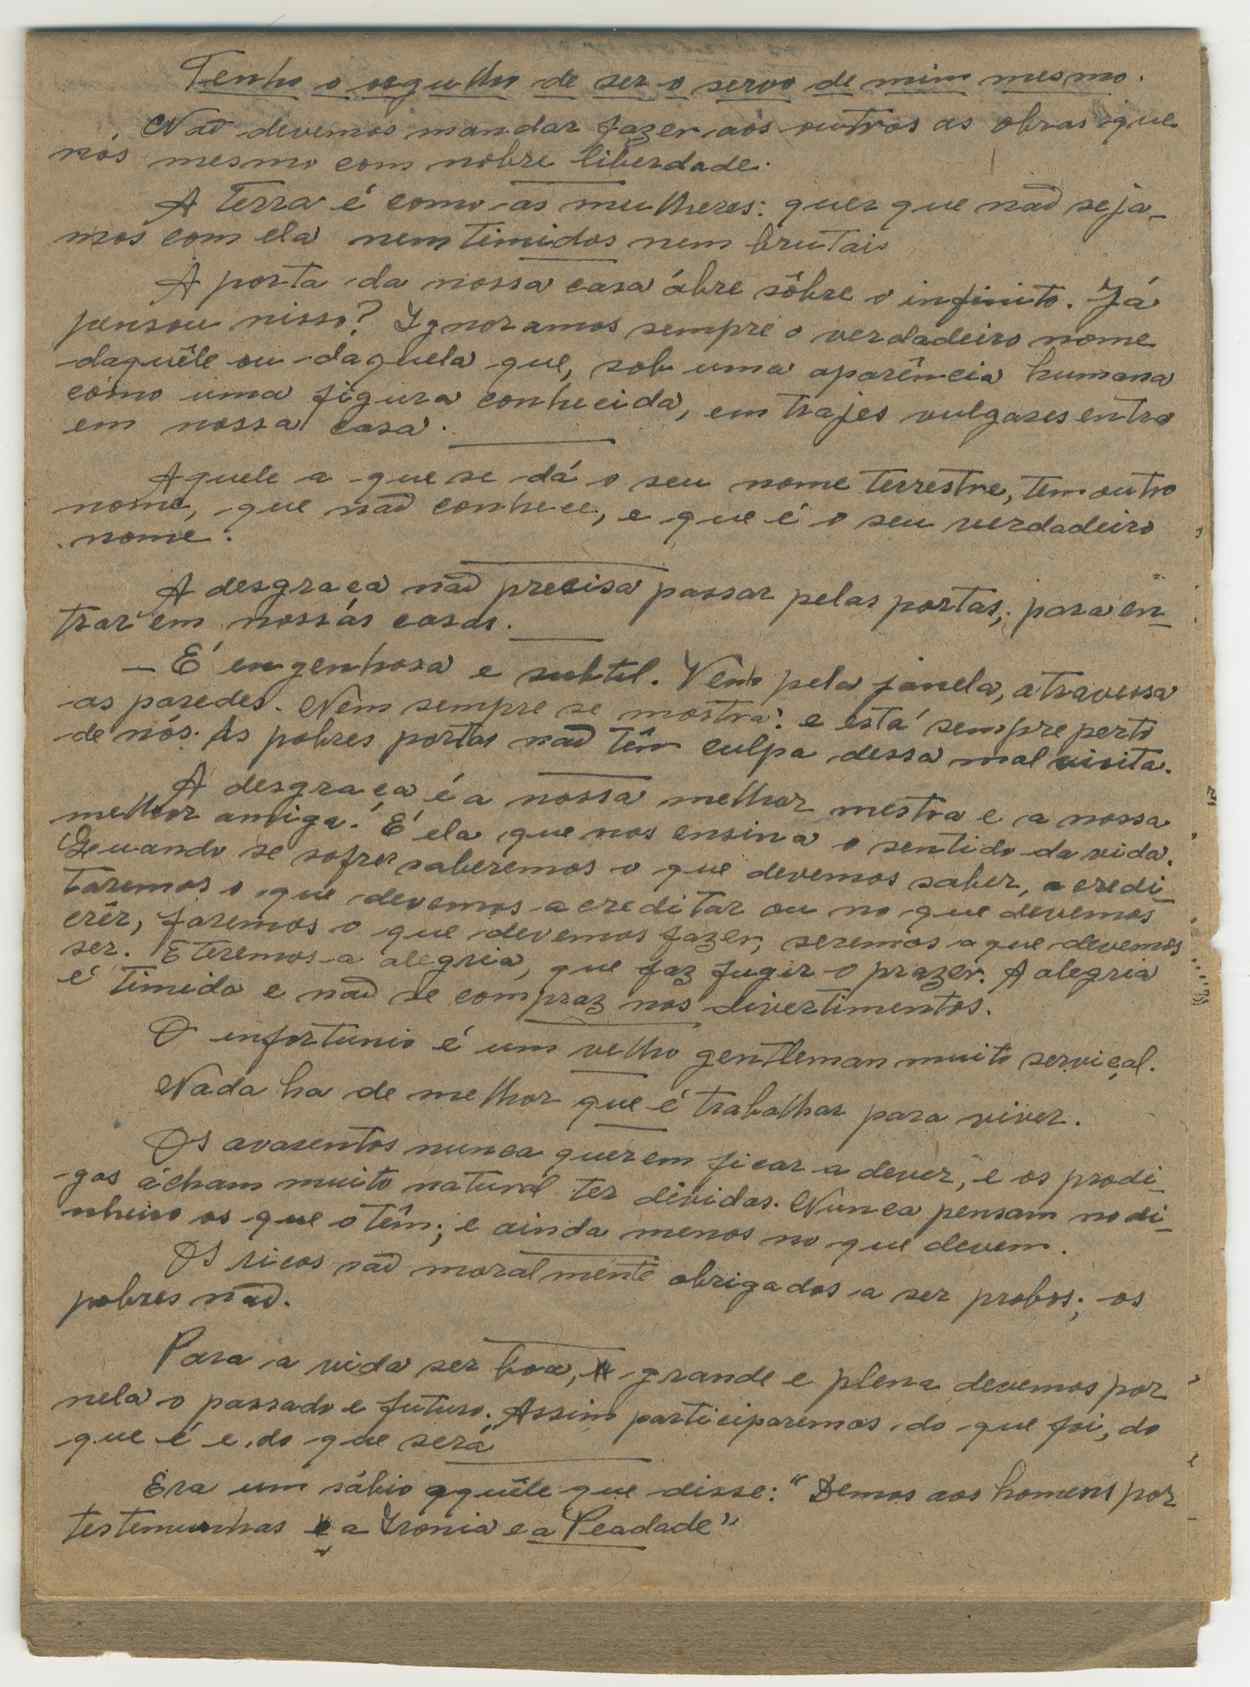 Tenho o orgulho de ser o servo de mim mesmo.
Não devemos mandar fazer aos outros as obras que
nós mesmo com nobre liberdade.
A Terra é como as mulheres: quer que não seja-
mos com ela nem timidos nem brutais
A porta da nossa casa ábre sôbre o infinito. Já
pensou nisso? Ignoramos sempre o verdadeiro nome
daquêle ou daquela que, sob uma aparência humana
como uma figura conhecida, em trajes vulgares entra
em nossa casa.
Aquele a que se dá o seu nome terrestre, tem outro
nome, que não conhece, e que é o seu verdadeiro
nome.
A desgraça não precisa passar pelas portas, para en-
trar em nossas casas.
- É engenhosa e subtil. Vem pela janela, atravessa
as paredes. Nem sempre se mostra: e está sempre perto
de nós. As pobres portas não têm culpa dessa mal visita.
A desgraça é a nossa melhor mestra e a nossa
melhor amiga. É ela que nos ensina o sentido da vida.
Quando se sofrer saberemos o que devemos saber, acredi-
taremos o que devemos acreditar ou no que devemos
crêr, faremos o que devemos fazer, seremos o que devemos
ser. E teremos a alegria, que faz fugir o prazer. A alegria
é timida e não se compraz nos divertimentos.
O infortunio é um velho gentleman muito serviçal.
Nada ha de melhor que é trabalhar para viver.
Os avarentos nunca querem ficar a dever, e os prodi-
gos ácham muito natural ter dividas. Nunca pensam no di-
nheiro os que o têm; e ainda menos no que devem.
Os ricos são moralmente obrigados a ser probos; os
pobres não.
Para a vida ser boa, grande e plena devemos por
nela o passado e futuro. Assim participaremos do que foi, do
que é e do que será
Era um sábio aquêle que disse: "Demos aos homens por
testemunhas a Ironia e a Peadade"